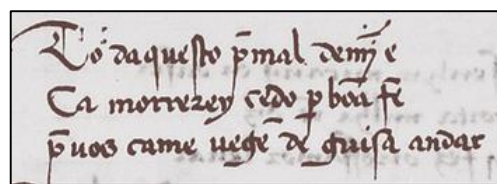 Tō daquesto p̄mal demȳ e
Ca morrerey cedo p̱ boā fe
p̄uos came uegē de guisa andar